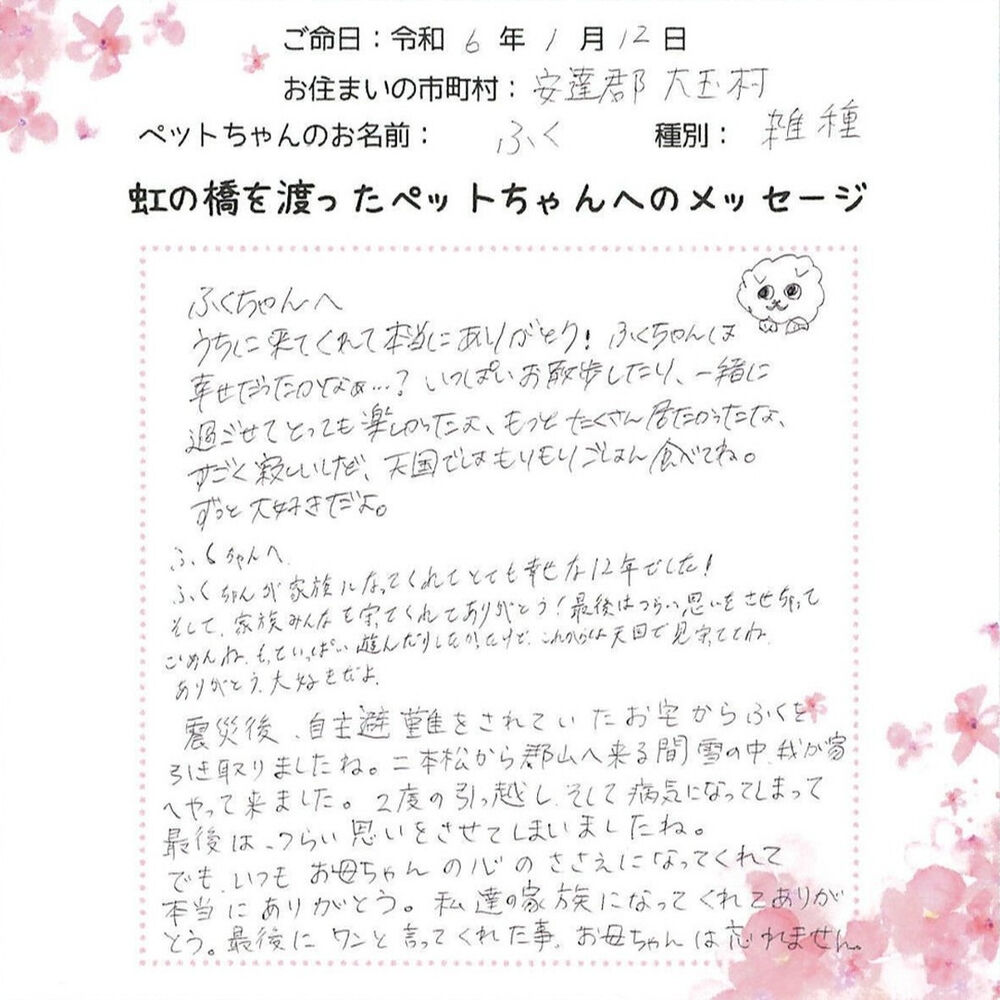 ご命日：令和 6 年 1 月 12 日
お住まいの市町村：安達郡 大玉村
ペットちゃんのお名前： ふく 種別： 雑種
虹の橋を渡ったペットちゃんへのメッセージ
ふくちゃんへ
うちに来てくれて本当にありがとう！ふくちゃんは
幸せだったかなぁ…？いっぱいお散歩したり、一緒に
過ごせてとっても楽しかったよ、もっとたくさん居たかったな、
すごく寂しいけど、天国ではもりもりごはん食べてね。
ずっと大好きだよ。
ふくちゃんへ
ふくちゃんが家族になってくれてとても幸せな12年でした！
そして、家族みんなを守てくれてありがとう！最後はつらい思いをさせちゃって
ごめんね、もっといっぱい遊んだりしたかったけど、これからは天国で見守ててね
ありがとう、大好きだよ、
震災後、自主避難をされていたお宅からふくを
引き取りましたね。二本松から郡山へ来る間雪の中、我が家
へやって来ました。2度の引っ越し、そして病気になってしまって
最後は、つらい思いをさせてしまいましたね。
でも、いつもお母ちゃんの心のささえになってくれて
本当にありがとう。私達の家族になってくれてありが
とう。最後にワンと言ってくれた事、お母ちゃんは忘れません。